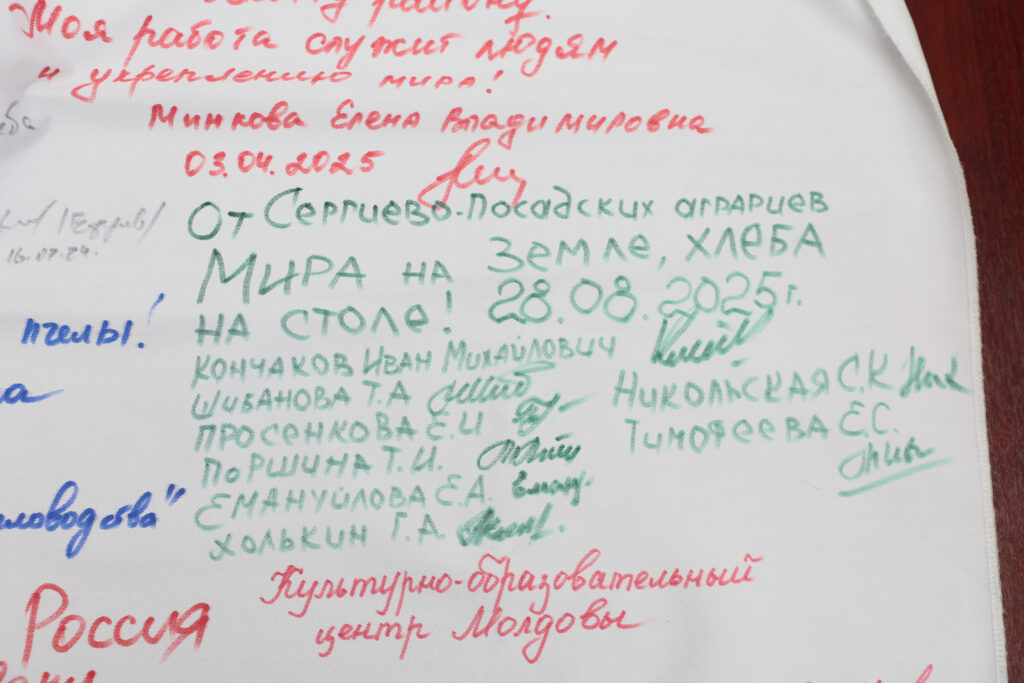 району.
Моя работа служит людям
и укреплению мира!
Минкова Елена Владимировна
03.04.2025
От Сергиево-Посадских аграриев
Мира на Земле, хлеба
на столе! 28.08.2025г.
Кончаков Иван Михайлович
Шибанова Т.А
Просенкова Е.И
Поршина Т.И.
Емануйлова Е.А.
Холькин Г.А.
Никольская С.К
Тимофеева Е.С.
16.02.24.
пчелы!
ловодства"
Культурно-образовательный
центр Молдовы
Россия